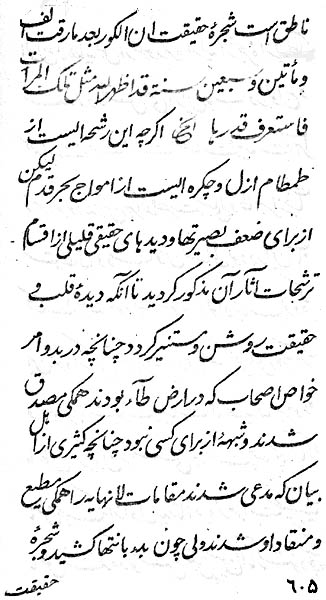 ناطق است شجرهٔ حقیقت ان الکور بعد مارقت الف
و مأتین و سبعین سنة قد اظهر الله مثل تلک المرات
فاستعرف قدر بها انتهی اگرچه این رشحه ایست از
طمطام ازل و چکره ایست از امواج بحر قدم لیکن
از برای ضعف بصیرتها و دیدهای حقیقی قلیلی از اقسام
ترشحات آثار آن مذکور گردید تا آنکه دیدهٔ قلب و
حقیقت روشن و مستنیر گردد چنانچه در بدو امر
خواص اصحاب که در ارض طآء بودند همگی مصدق
شدند و شبههٔ از برای کسی نبود چنانچه کثیری از اهل
بیان که مدعی شدند مقامات لانهایه را همگی مطیع
و منقاد او شدند ولی چون بدء بانتها کشید و شجرهٔ
۶۰۵
حقیقت